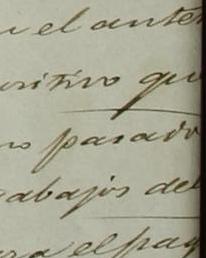 el ante
sitivo que
pasado
abajos del
el pag